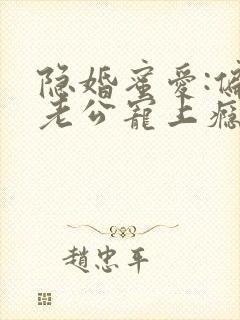 隐婚蜜爱:偏
老公宠上瘾
趙忠平